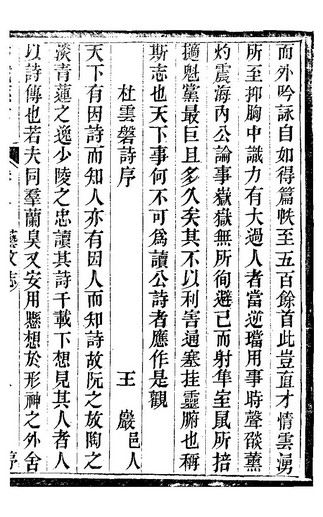 而外吟詠自如得篇帙至五百餘首此豈直才情雲湧
所至抑胸中識力有大過人者當逆璫用事時聲燄薰
灼震海內公論事嶽嶽無所徇避已而射隼室鼠所掊
擿魁黨最巨且多久矣其不以利害通塞挂靈腑也稱
斯志也天下事何不可為讀公詩者應作是觀
杜雲磐詩序
王巖邑人
天下有因詩而知人亦有因人而知詩故阮之放陶之
淡青蓮之逸少陵之忠讀其詩千載下想見其人者人
以詩傳也若夫同羣蘭臭又安用懸想於形神之外舍
藝文志
序